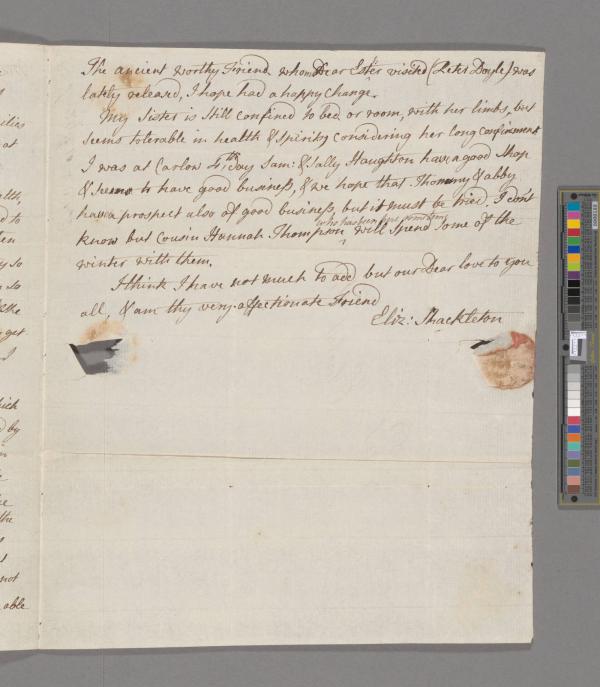 The ancient worthy Friend whom Dear Ester visited (Peter Doyle) was
lately released, I hope had a happy change.
My Sister is still confined to bed or room, with her limbs, but
seems tolerable in health & spirits, considering her long confinement
I was at Carlow 4th day Sam: & Sally Haughton have a good Shop
& seems to have good business, & we hope that Thommy & abby
have a prospect also of good business, but it must be tried. I don't
who has been here some time
know but Cousin Hannah Thompson will spend some of the
winter with them.
I think I have not much to add but our Dear love to you
all, & am thy very affectionate Friend
Eliz: Shackleton
at
to
so
get
I
by
the
not
able